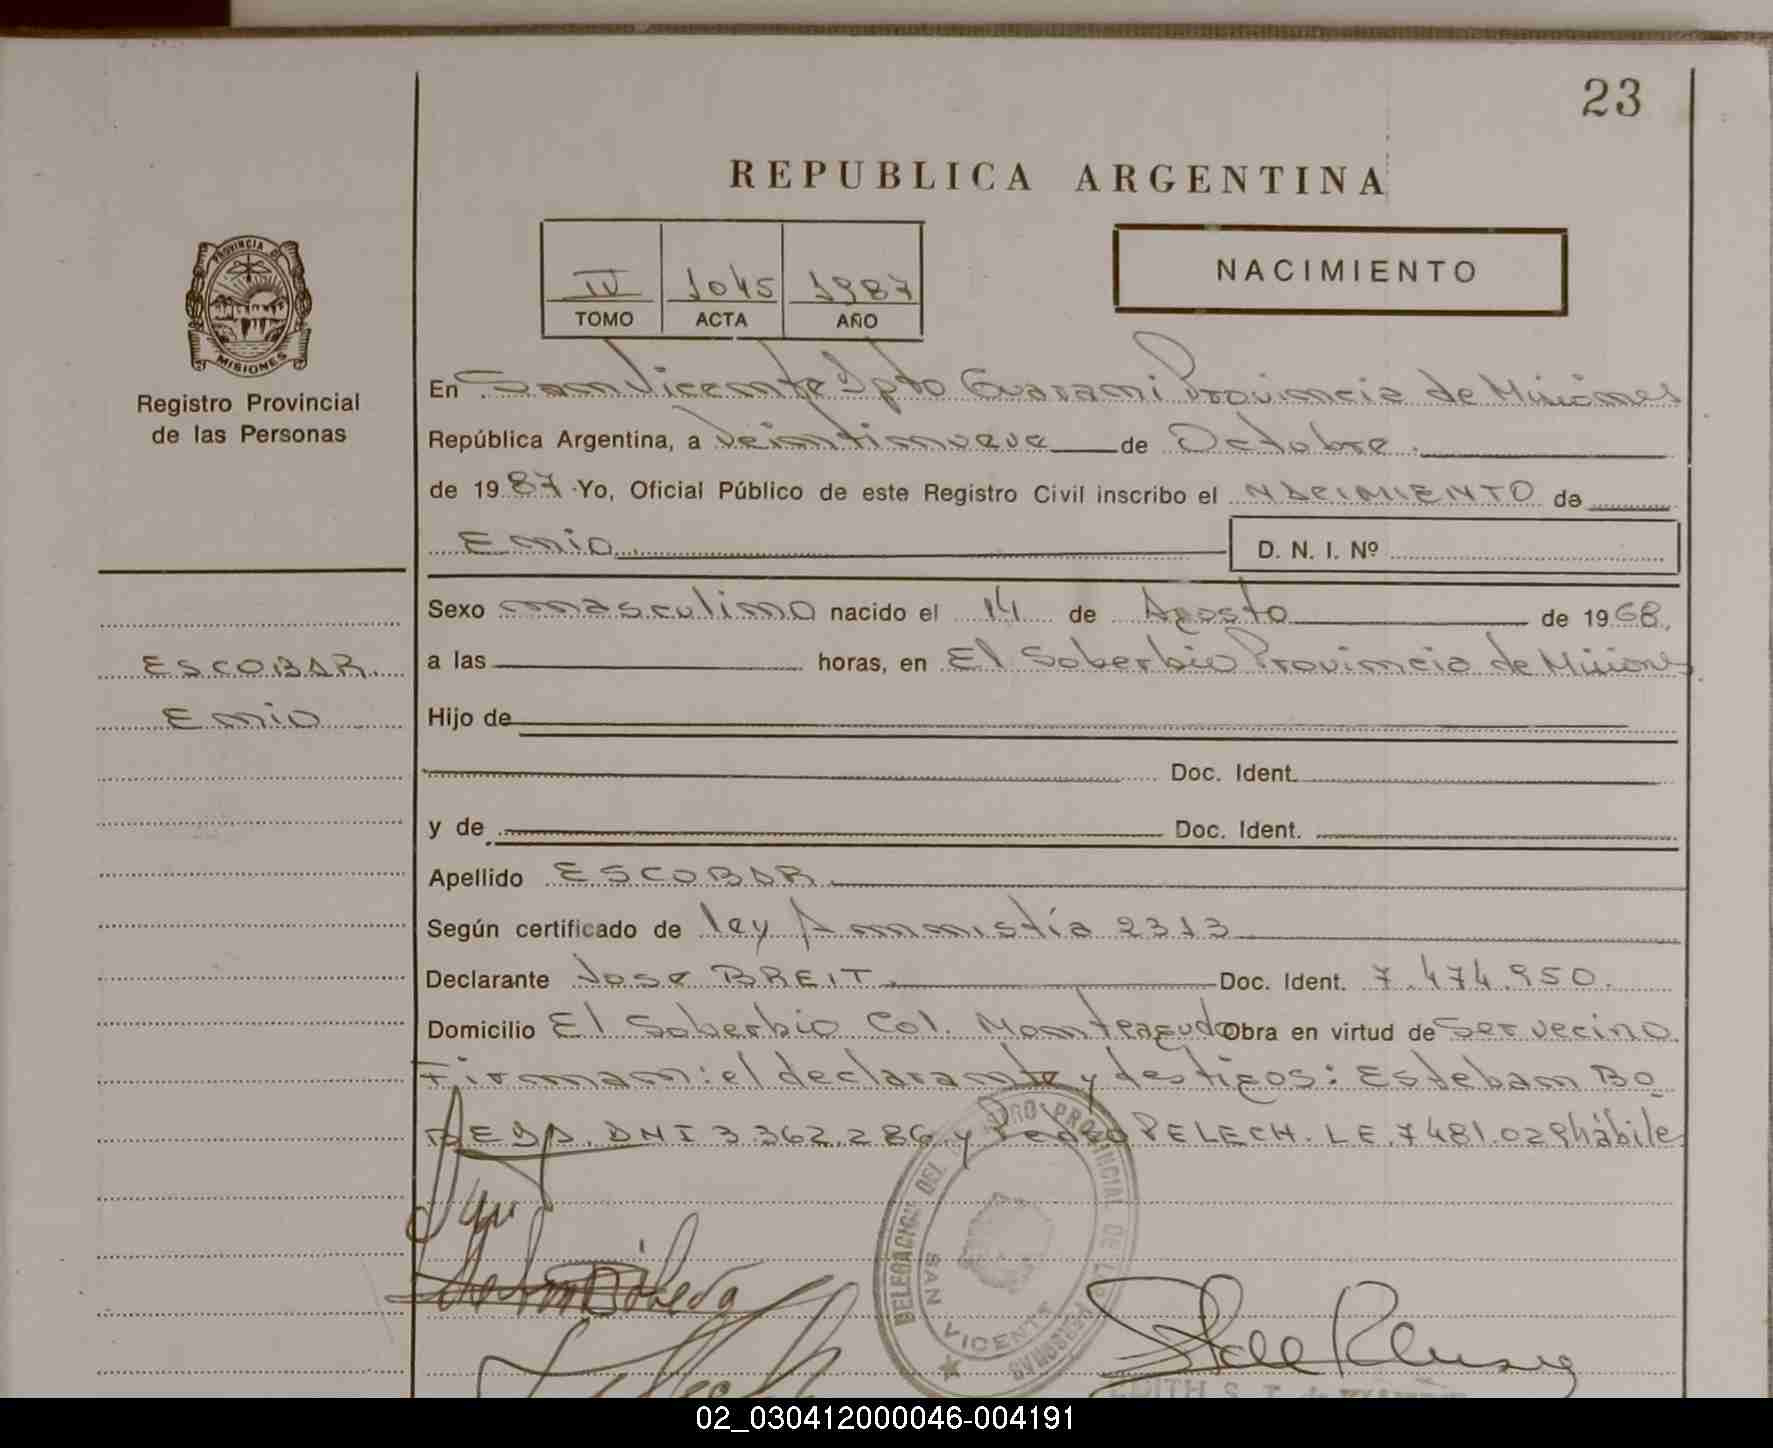 23
REPUBLICA ARGENTINA
IV 1045 1987
TOMO ACTA AÑO
NACIMIENTO
PROVINCIA DE
MISIONES
Registro Provincial
de las Personas
En San Vicente Dpto Guarani Provincia de Misiones
República Argentina, a veintinueve de Octubre
de 1987 Yo, Oficial Público de este Registro Civil inscribo el NACIMIENTO de
Emio D. N. I. Nº
Sexo masculino nacido el 14 de Agosto de 1968
a las horas, en El Soberbio Provincia de Misiones
ESCOBAR
Emio
Hijo de
Doc. Ident.
y de Doc. Ident.
Apellido ESCOBAR
Según certificado de ley Amnistía 2313
Declarante Jose BREIT Doc. Ident. 7.474.950.
Domicilio El Soberbio Col. Monteagudo Obra en virtud de Ser vecino
Firman: el declarante y testigos: Esteban BO
DNI 3.362.286 y Pedro PELECH. LE. 7481.029 hábiles
DELEGACION DEL REGISTRO PROVINCIAL DE LAS PERSONAS
SAN VICENTE
EDITH S. T. de
02_030412000046-004191